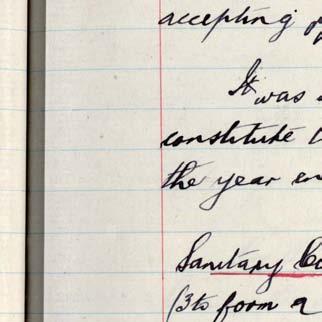 accepting
It was
constitute
the year
Sanitary
(3 to form a